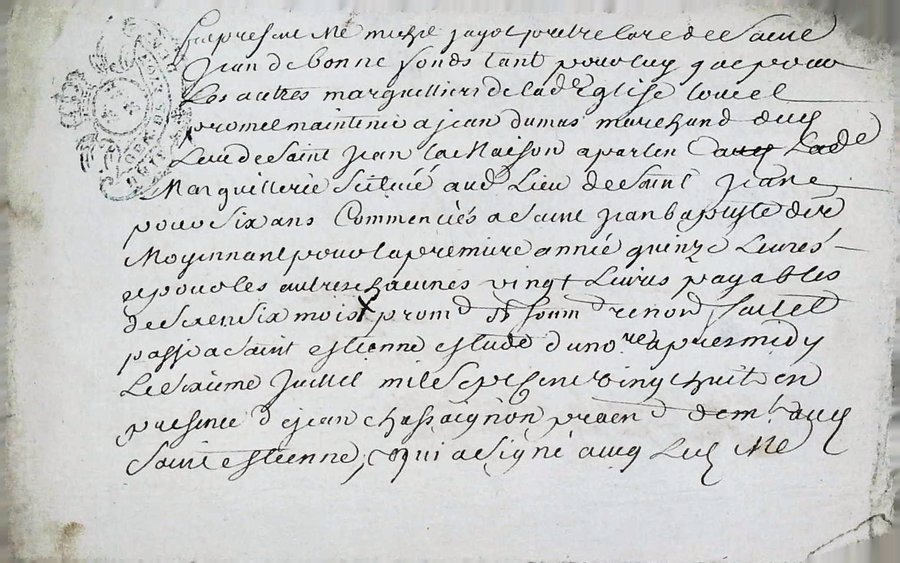 fut present Me michel jayot prêtre curé de Saint
Jean de bonne fonds tant pour luy que pour
Les autres marguilliers de lade Eglise loue et
promet maintenir a jean dumas marchand dud
Lieu de Saint Jean la Maison apartent a Lade
Marguillerie scituée aud Lieu de Saint Jean
pour six ans Commencés a Saint Jean baptiste der
Moyennant pour la premiere année quinze Livres
et pour les autres chacunes vingt Livres payables
de six en six mois prom oblig soum renon fait et
passé a Saint estienne estude du nore apres midy
Le sixieme Juillet mil sept cent vingt huit en
presence de jean chassaignon pra en d dem aud
Saint estienne, qui a signé avec Led Me